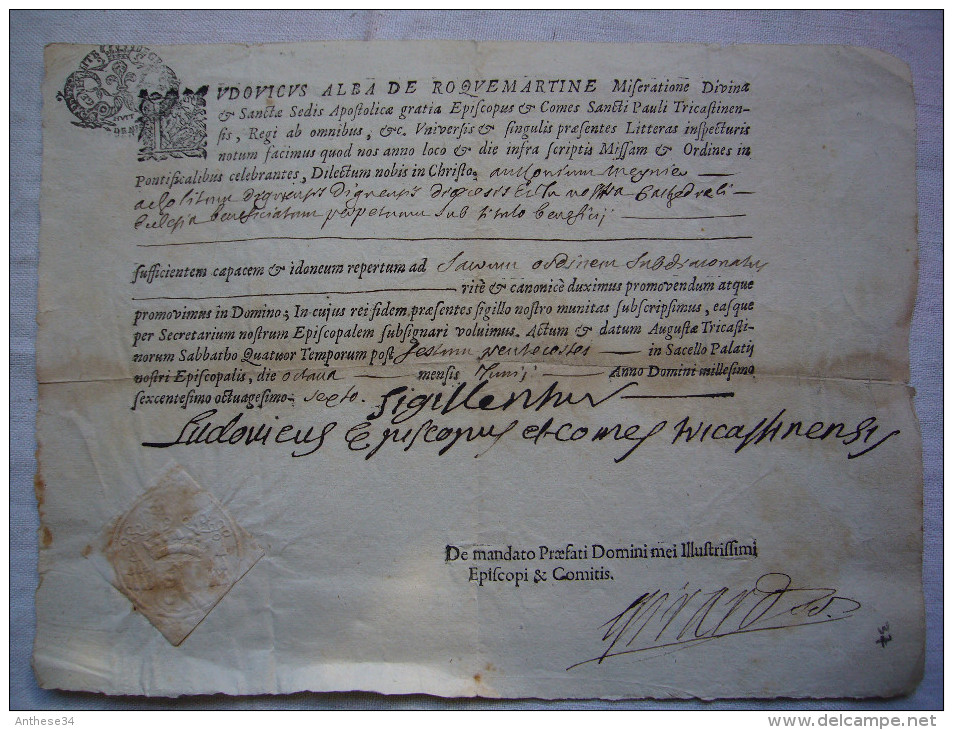 LUDOVICUS ALBA DE ROQUEMARTINE Miseratione Divina
& Sanctæ Sedis Apostolicæ gratia Episcopus & Comes Sancti Pauli Tricastinen-
sis, Regi ab omnibus, &c. Vniversis & singulis præsentes Litteras inspecturis
notum facimus quod nos anno loco & die infra scriptis Missam & Ordines in
Pontificalibus celebrantes, Dilectum nobis in Christo, anthonium meynier
acolitum dignensis dioecesis et in nostra Cathedrali
Eclesia beneficiatum perpetuum sub titulo beneficij
sufficientem capacem & idoneum repertum ad Sacrum ordinem subdiaconatus
ritè & canonicè duximus promovendum atque
promovimus in Domino; In cujus rei fidem, præsentes sigillo nostro munitas subscripsimus, easque
per Secretarium nostrum Episcopalem subsignari voluimus. Actum & datum Augustæ Tricasti-
norum Sabbatho Quatuor Temporum post festum pentecostes in Sacello Palatij
nostri Episcopalis, die octava mensis Junij Anno Domini millesimo
sexcentesimo octuagesimo sexto.
Ludovicus Episcopus et comes tricastinensis
De mandato Præfati Domini mei Illustrissimi
Episcopi & Comitis.
Girard
37
Anthese34
www.delcampe.net